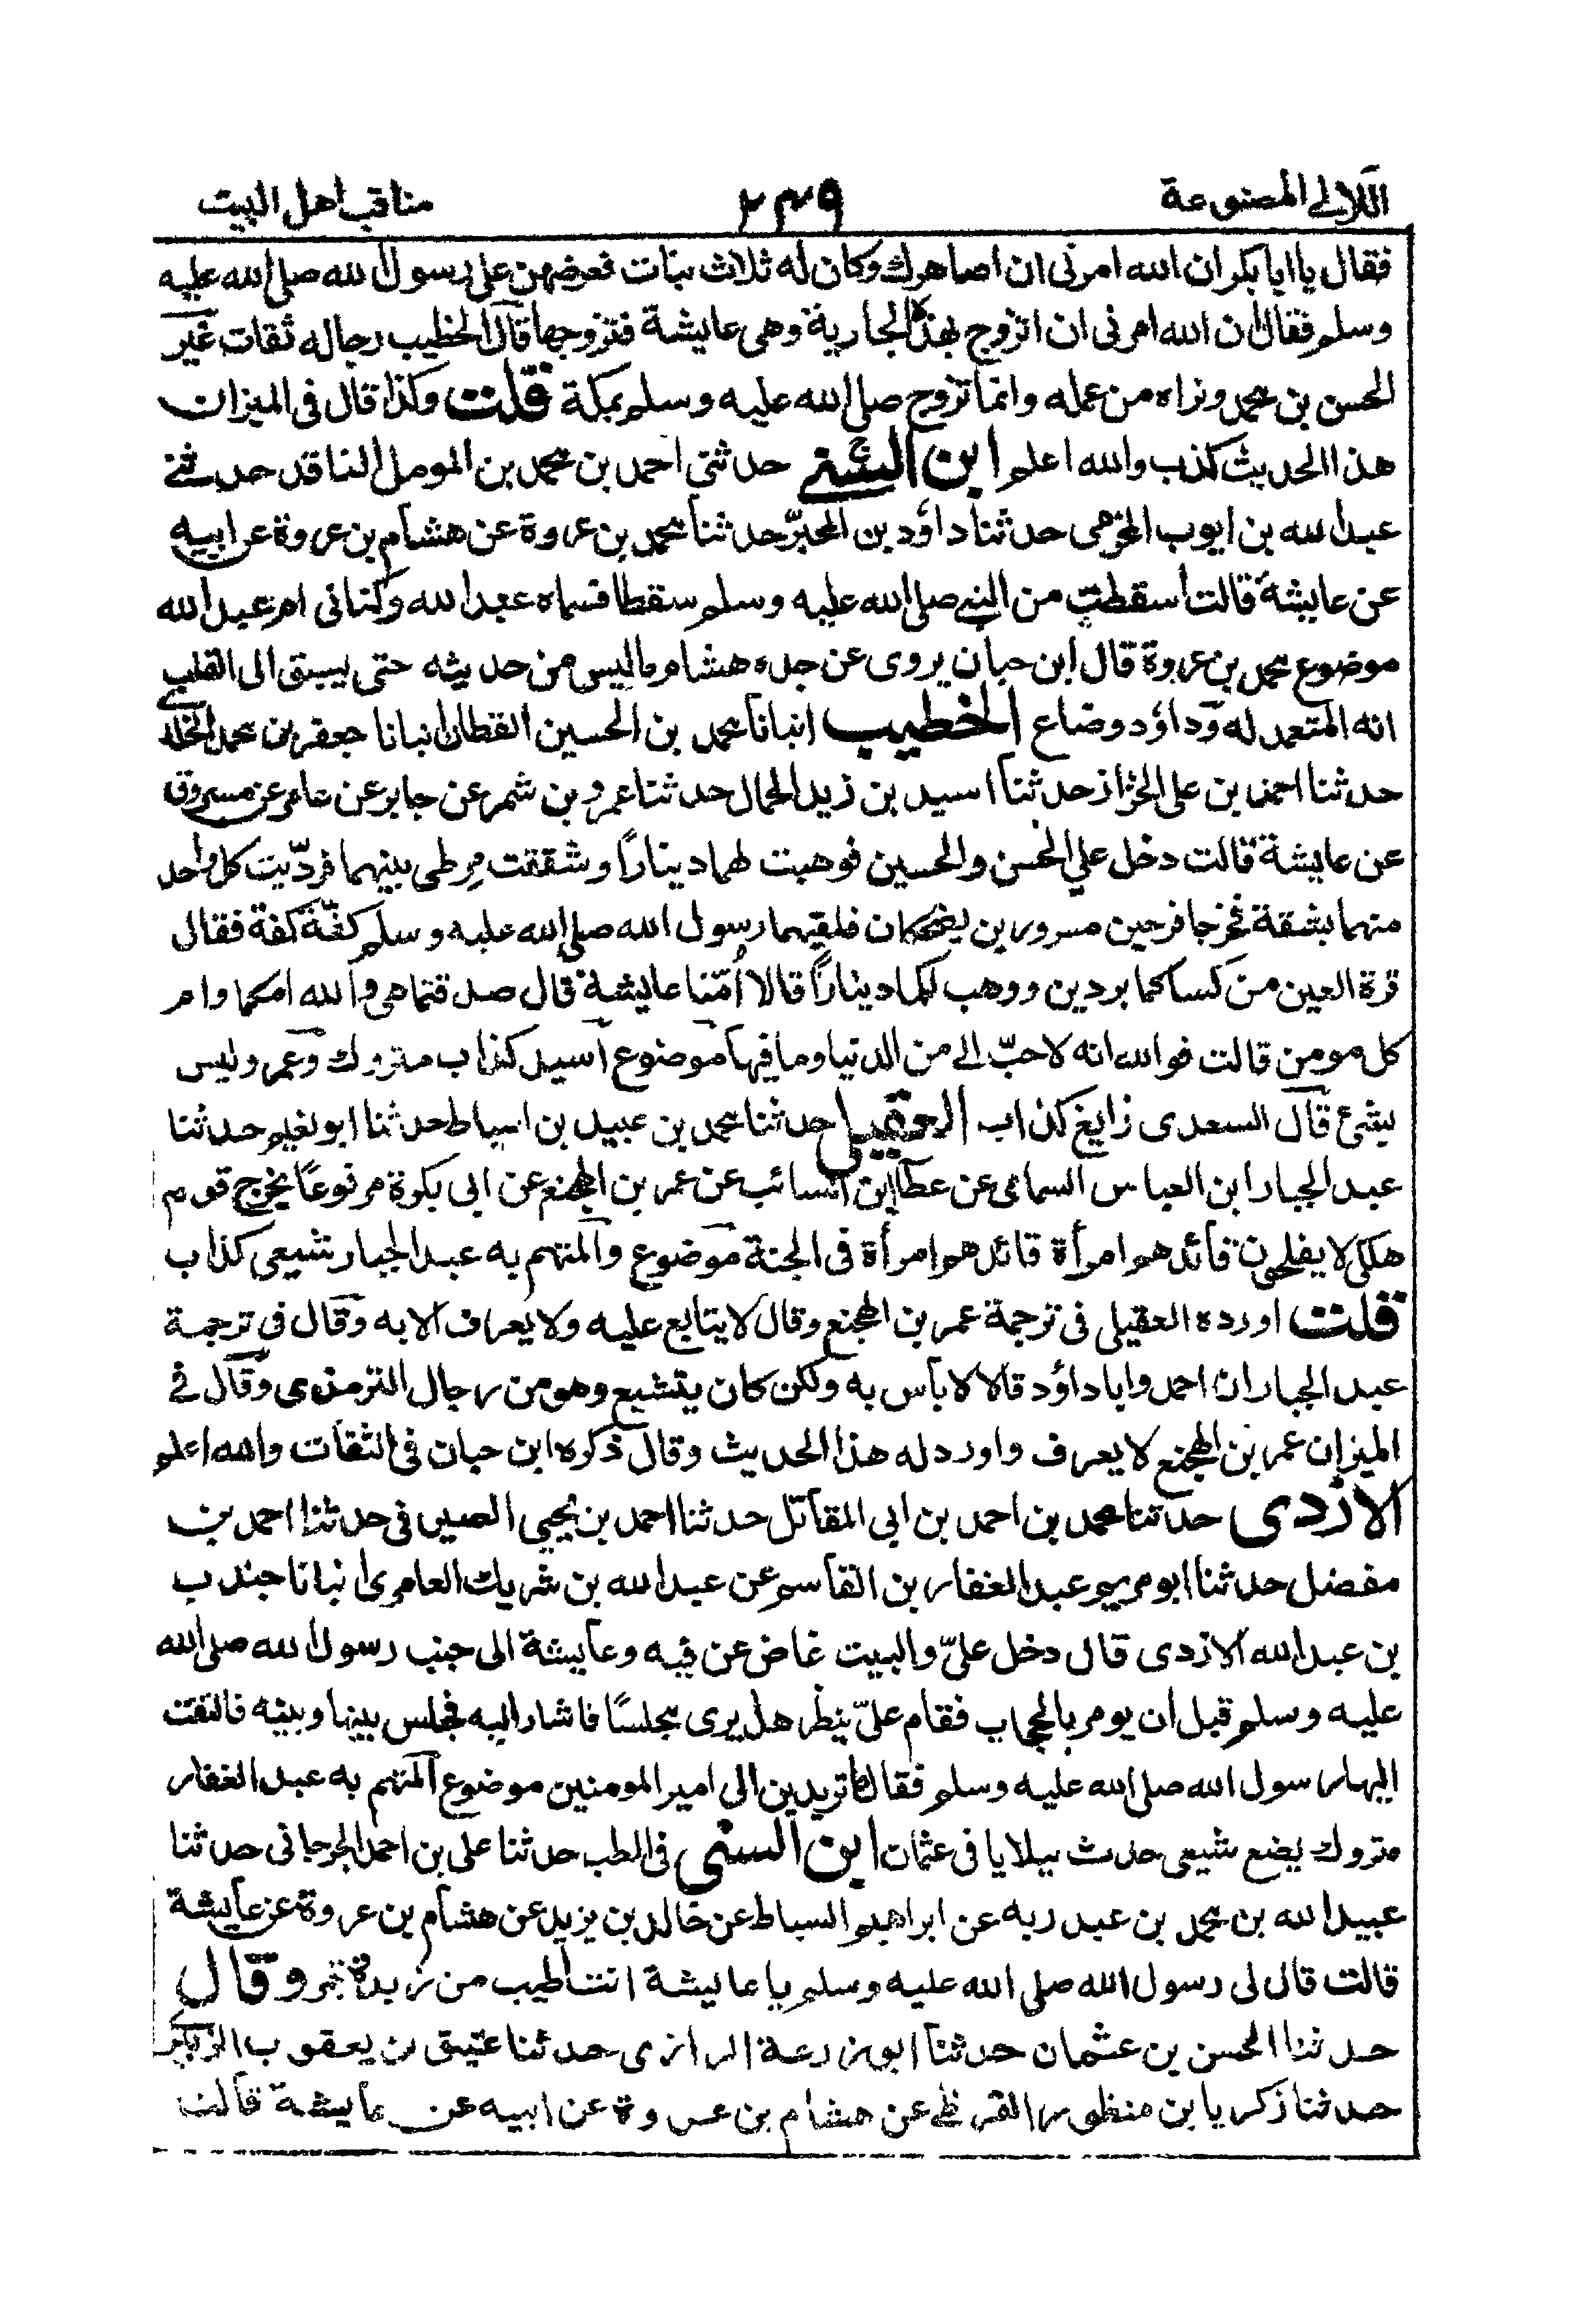 اللآلى المصنوعة ٢٣٩ مناقب اهل البيت
فقال يا ابا بكر ان الله امرنى ان اصاهرك وكان له ثلاث بنات فعرضهن على رسول الله صلى الله عليه
وسلم فقال ان الله امرنى ان اتزوج بهذه الجارية وهى عايشة فتزوجها قال الخطيب رجاله ثقات غير
الحسن بن محمد ونراه من عمله وانما تزوج صلى الله عليه وسلم بمكة قلت وكذا قال فى الميزان
هذا الحديث كذب والله اعلم ابن السنى حدثنى احمد بن محمد بن المومل الناقد حدثنى
عبد الله بن ايوب المخرمى حدثنا داؤد بن المحبّر حدثنا محمد بن عروة عن هشام بن عروة عن ابيه
عن عايشة قالت اسقطت من النبى صلى الله عليه وسلم سقطا فسماه عبد الله وكنانى ام عبد الله
موضوع محمد بن عروة قال ابن حبان يروى عن جده هشام ما ليس من حديثه حتى يسبق الى القلب
انه المتعمد له وداؤد وضاع الخطيب انبانا محمد بن الحسين القطان انبانا جعفر بن محمد الخلدى
حدثنا احمد بن على الخزاز حدثنا اسيد بن زيد الجمال حدثنا عمرو بن شمر عن جابر عن عامر عن مسروق
عن عايشة قالت دخل علي الحسن والحسين فوهبت لهما ديناراً وشققت مرطى بينهما فردّيت كل واحد
منهما بشقة فخرجا فرحين مسرورين يضحكان فلقيهما رسول الله صلى الله عليه وسلم كفّة كفة فقال
قرة العين من كساكما بردين ووهب لكما ديناراً قالا أمّنا عايشة قال صدقتما هى والله امكما وام
كل مومن قالت فو الله انه لاحبّ الى من الدنيا وما فيها موضوع اسيد كذاب متروك وعمر وليس
بشئ قال السعدى زايغ كذاب العقيلى حدثنا محمد بن عبيد بن اسباط حدثنا ابو نعيم حدثنا
عبد الجبار ابن العباس السامى عن عطا ابن السائب عن عمر بن الهجنع عن ابى بكرة مرفوعاً يخرج قوم
هلكى لا يفلحون قائدهم امرأة قائدهم امرأة فى الجنة موضوع والمتهم به عبد الجبار شيعى كذاب
قلت اورده العقيلى فى ترجمة عمر بن الهجنع وقال لا يتابع عليه ولا يعراف الا به وقال فى ترجمة
عبد الجبار ان احمد وابا داؤد قالا لا بأس به ولكن كان يتشيع وهو من رجال الترمذى وقال فى
الميزان عمر بن الهجنع لا يعرف واورد له هذا الحديث وقال ذكره ابن حبان فى الثقات والله اعلم
الازدى حدثنا محمد بن احمد بن ابى المقاتل حدثنا احمد بن يحيى الصيرفى حدثنا احمد بن
مفضل حدثنا ابو مريم عبد الغفار بن القاسم عن عبد الله بن شريك العامرى انبانا جندب
بن عبد الله الازدى قال دخل علىّ والبيت غاض عن فيه وعايشة الى جنب رسول الله صلى الله
عليه وسلم قبل ان يومر بالحجاب فقام علىّ ينظر هل يرى مجلسًا فاشار اليه فجلس بينها وبينه فالتفت
اليها رسول الله صلى الله عليه وسلم فقال ما تريدين الى امير المومنين موضوع المتهم به عبد الغفار
متروك يضع شيعى حدث ببلايا فى عثمان ابن السنى فى الطب حدثنا على بن احمد الجرجانى حدثنا
عبيد الله بن محمد بن عبد ربه عن ابراهيم السباط عن خالد بن يزيد عن هشام بن عروة عن عايشة
قالت قال لى رسول الله صلى الله عليه وسلم يا عايشة انت اطيب من زبدة بتمر وقال
حدثنا الحسن بن عثمان حدثنا ابو زرعة الرازى حدثنا عتيق بن يعقوب الزبيرى
حدثنا زكريا بن منظور القرظى عن هشام بن عروة عن ابيه عن عايشة قالت